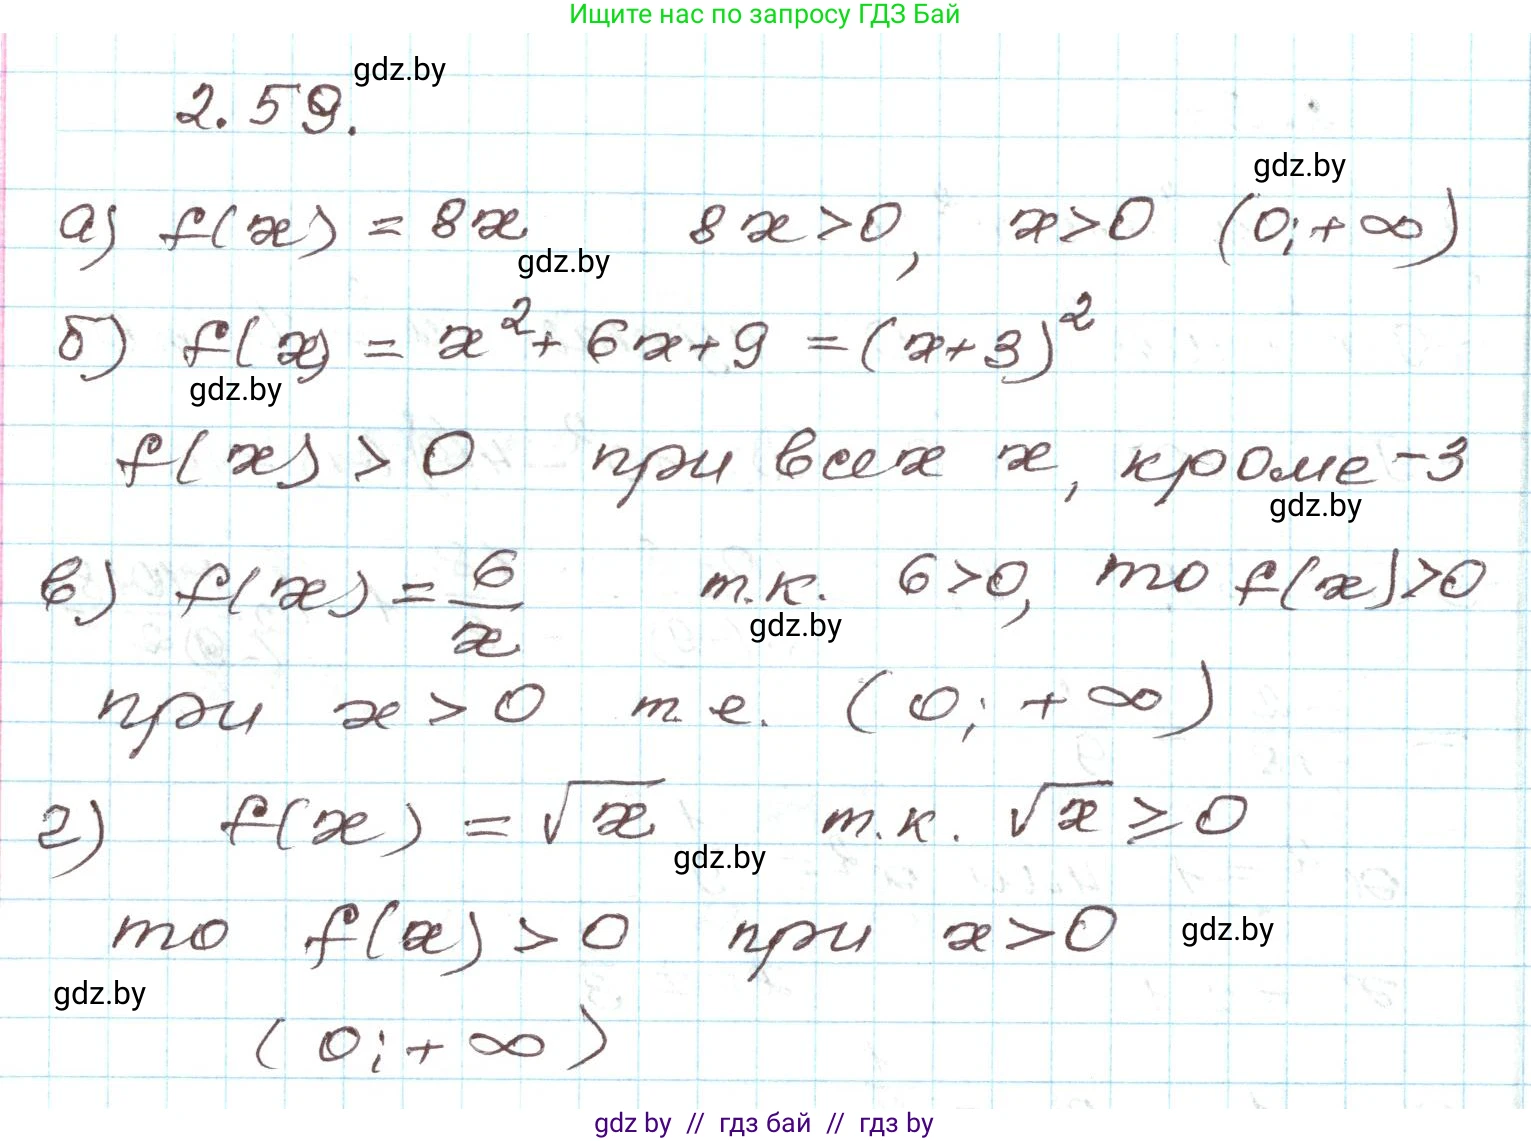 Ищите нас по запросу ГДЗ Бай
gdz.by
2.59.
gdz.by
а) f(x) = 8x 8x>0, x>0 (0;+∞)
gdz.by
б) f(x) = x²+6x+9 =(x+3)²
gdz.by
f(x) > 0 при всех x, кроме -3
gdz.by
в) f(x) = 6/x т.к. 6>0, то f(x)>0
gdz.by
при x>0 т.е. (0;+∞)
г) f(x) = √x т.к. √x ≥ 0
gdz.by
то f(x) > 0 при x>0
gdz.by
gdz.by
(0;+∞)
gdz.by // гдз бай // гдз by